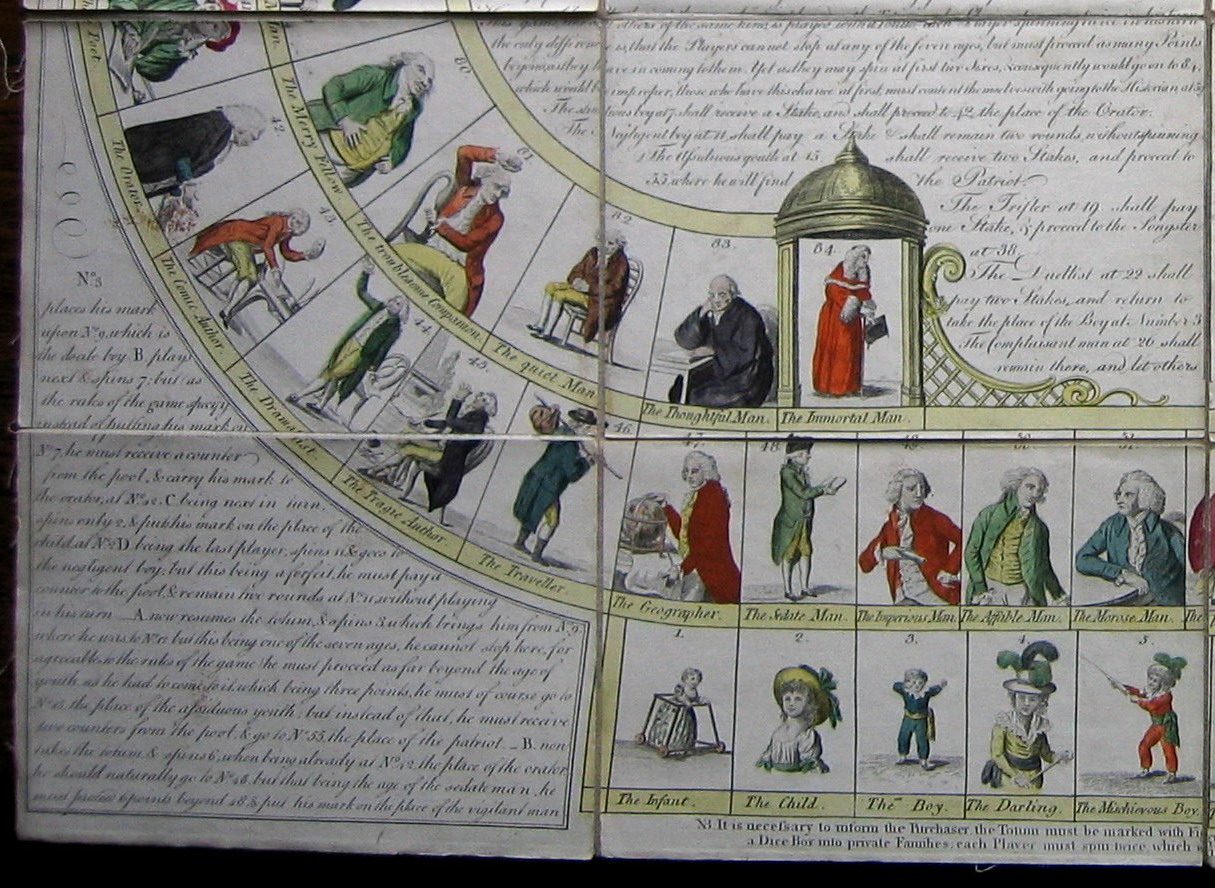 others of the same kind is played with a Totum each Player spinning twice in his turn
the only difference is, that the Players cannot stop at any of the seven ages, but must proceed as many Points
beyond as they have in coming to them. Yet as they may spin at first two Sixes, & consequently would go on to 84,
which would be improper, those who have this chance at first, must content themselves with going to the Historian at
The studious boy at 7, shall receive a Stake, and shall proceed to 42 the place of the Orator.
The Negligent boy at 11, shall pay a Stake & shall remain two rounds, without spinning
The Assiduous youth at 15, shall receive two Stakes, and proceed to
55, where he will find the Patriot.
The Trifler at 19 shall pay
one Stake, & proceed to the Songster
at 38.
The Duellist at 22 shall
pay two Stakes, and return to
take the place of the Boy at Number 3
The Complaisant man at 26 shall
remain there, and let others
Poet.
The Orator.
42.
The Comic Author.
43.
The Dramatist.
44.
The Tragic Author.
45.
The Traveller.
46.
The Merry Fellow
80
The troublesome Companion.
81
The quiet Man
82
83.
The Thoughtful Man.
84.
The Immortal Man.
47.
48.
49.
50.
51.
The Geographer.
The Sedate Man.
The Imperious Man.
The Affable Man.
The Morose Man.
The
1.
2.
3.
4.
5.
The Infant.
The Child.
The Boy.
The Darling.
The Mischievous Boy.
places his mark
upon No. 9, which is
the docile boy. B plays
next & spins 7; but as
the rules of the game specify
instead of putting his mark on
No. 7, he must receive a counter
from the pool, & carry his mark to
the orator, at No. 42. C being next in turn,
spins only 2, & puts his mark on the place of the
child, at No. 2. D being the last player, spins 11 & goes to
the negligent boy; but this being a forfeit, he must pay a
counter to the pool, & remain two rounds at No. 11, without playing
in his turn. A now resumes the totum, & spins 3, which brings him from No. 9.
where he was to No. 12 but this being one of the seven ages, he cannot stop here, for
agreeable to the rules of the game he must proceed as far beyond the age of
youth, as he had to come to it, which being three points, he must of course go to
No. 15, the place of the assiduous youth; but instead of that, he must receive
two counters from the pool, & go to No. 55, the place of the patriot. B. now
takes the totum, & spins 6, when being already at No. 42, the place of the orator,
he should naturally go to No. 48, but that being the age of the sedate man, he
must proceed 6 points beyond 48, & put his mark on the place of the vigilant man
NB. It is necessary to inform the Purchaser, the Totum must be marked with
a Dice Box into private Families, each Player must spin twice, which